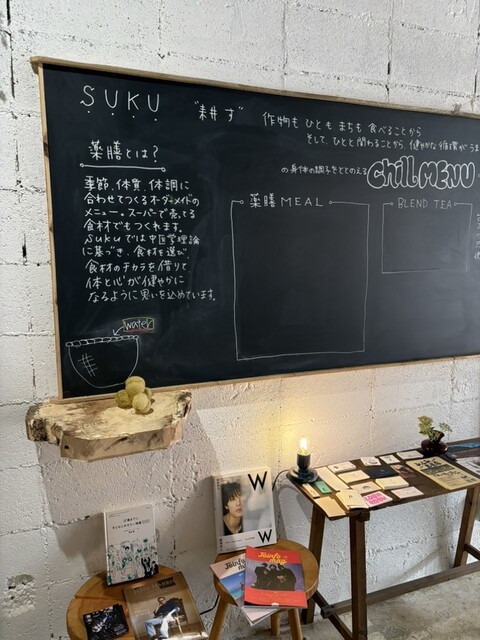 SUKU
"耕す"
作物も ひとも まちも 食べることから
そして、ひとと関わることから、健やかな循環がうま
の身体の調子をととのえる
Chill MENU
薬膳とは?
季節、体質、体調に
合わせてつくるオーダーメイドの
メニュー。スーパーで売ってる
食材でもつくれます。
SUKUでは中医学理論
に基づき、食材を選び
食材のチカラを借りて
体と心が健やかに
なるように思いを込めています。
薬膳MEAL
BLEND TEA
water
W
W